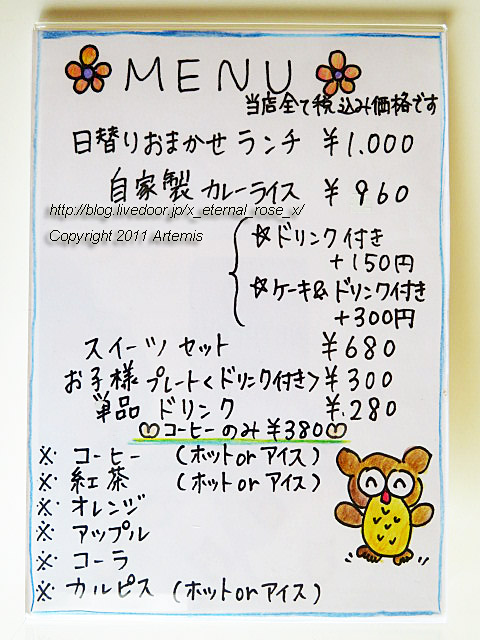 MENU
当店全て税込み価格です
日替りおまかせランチ ¥1.000
自家製カレーライス ¥960
http://blog.livedoor.jp/x_eternal_rose_x/
Copyright 2011 Artemis
☆ドリンク付き
+150円
☆ケーキ&ドリンク付き
+300円
スイーツセット ¥680
お子様プレート<ドリンク付き> ¥300
単品ドリンク ¥.280
コーヒーのみ ¥380
※ コーヒー (ホットorアイス)
※ 紅茶 (ホットorアイス)
※ オレンジ
※ アップル
※ コーラ
※ カルピス (ホットorアイス)